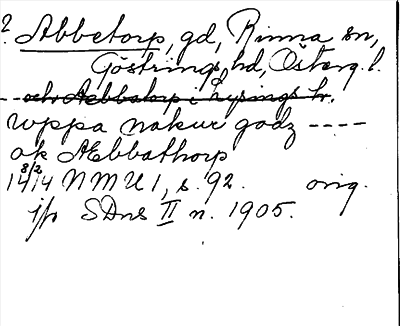 ? Abbetorp, gd, Rinna sn,
Göstrings hd, Österg. l.
--- och Aebbatorp i Lysings hr.
uppa nakur godz ----
ok AEbbathorp
14 8/2 14 NMU 1, s. 92. orig.
j/o SDns II n. 1905.